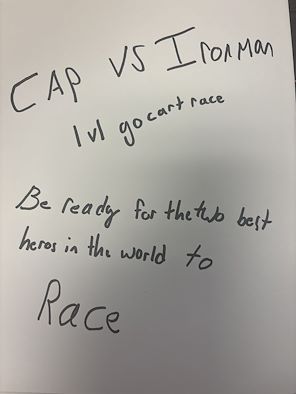 CAP VS Ironman
1v1 gocart race
Be ready for the two best
heros in the world to
Race